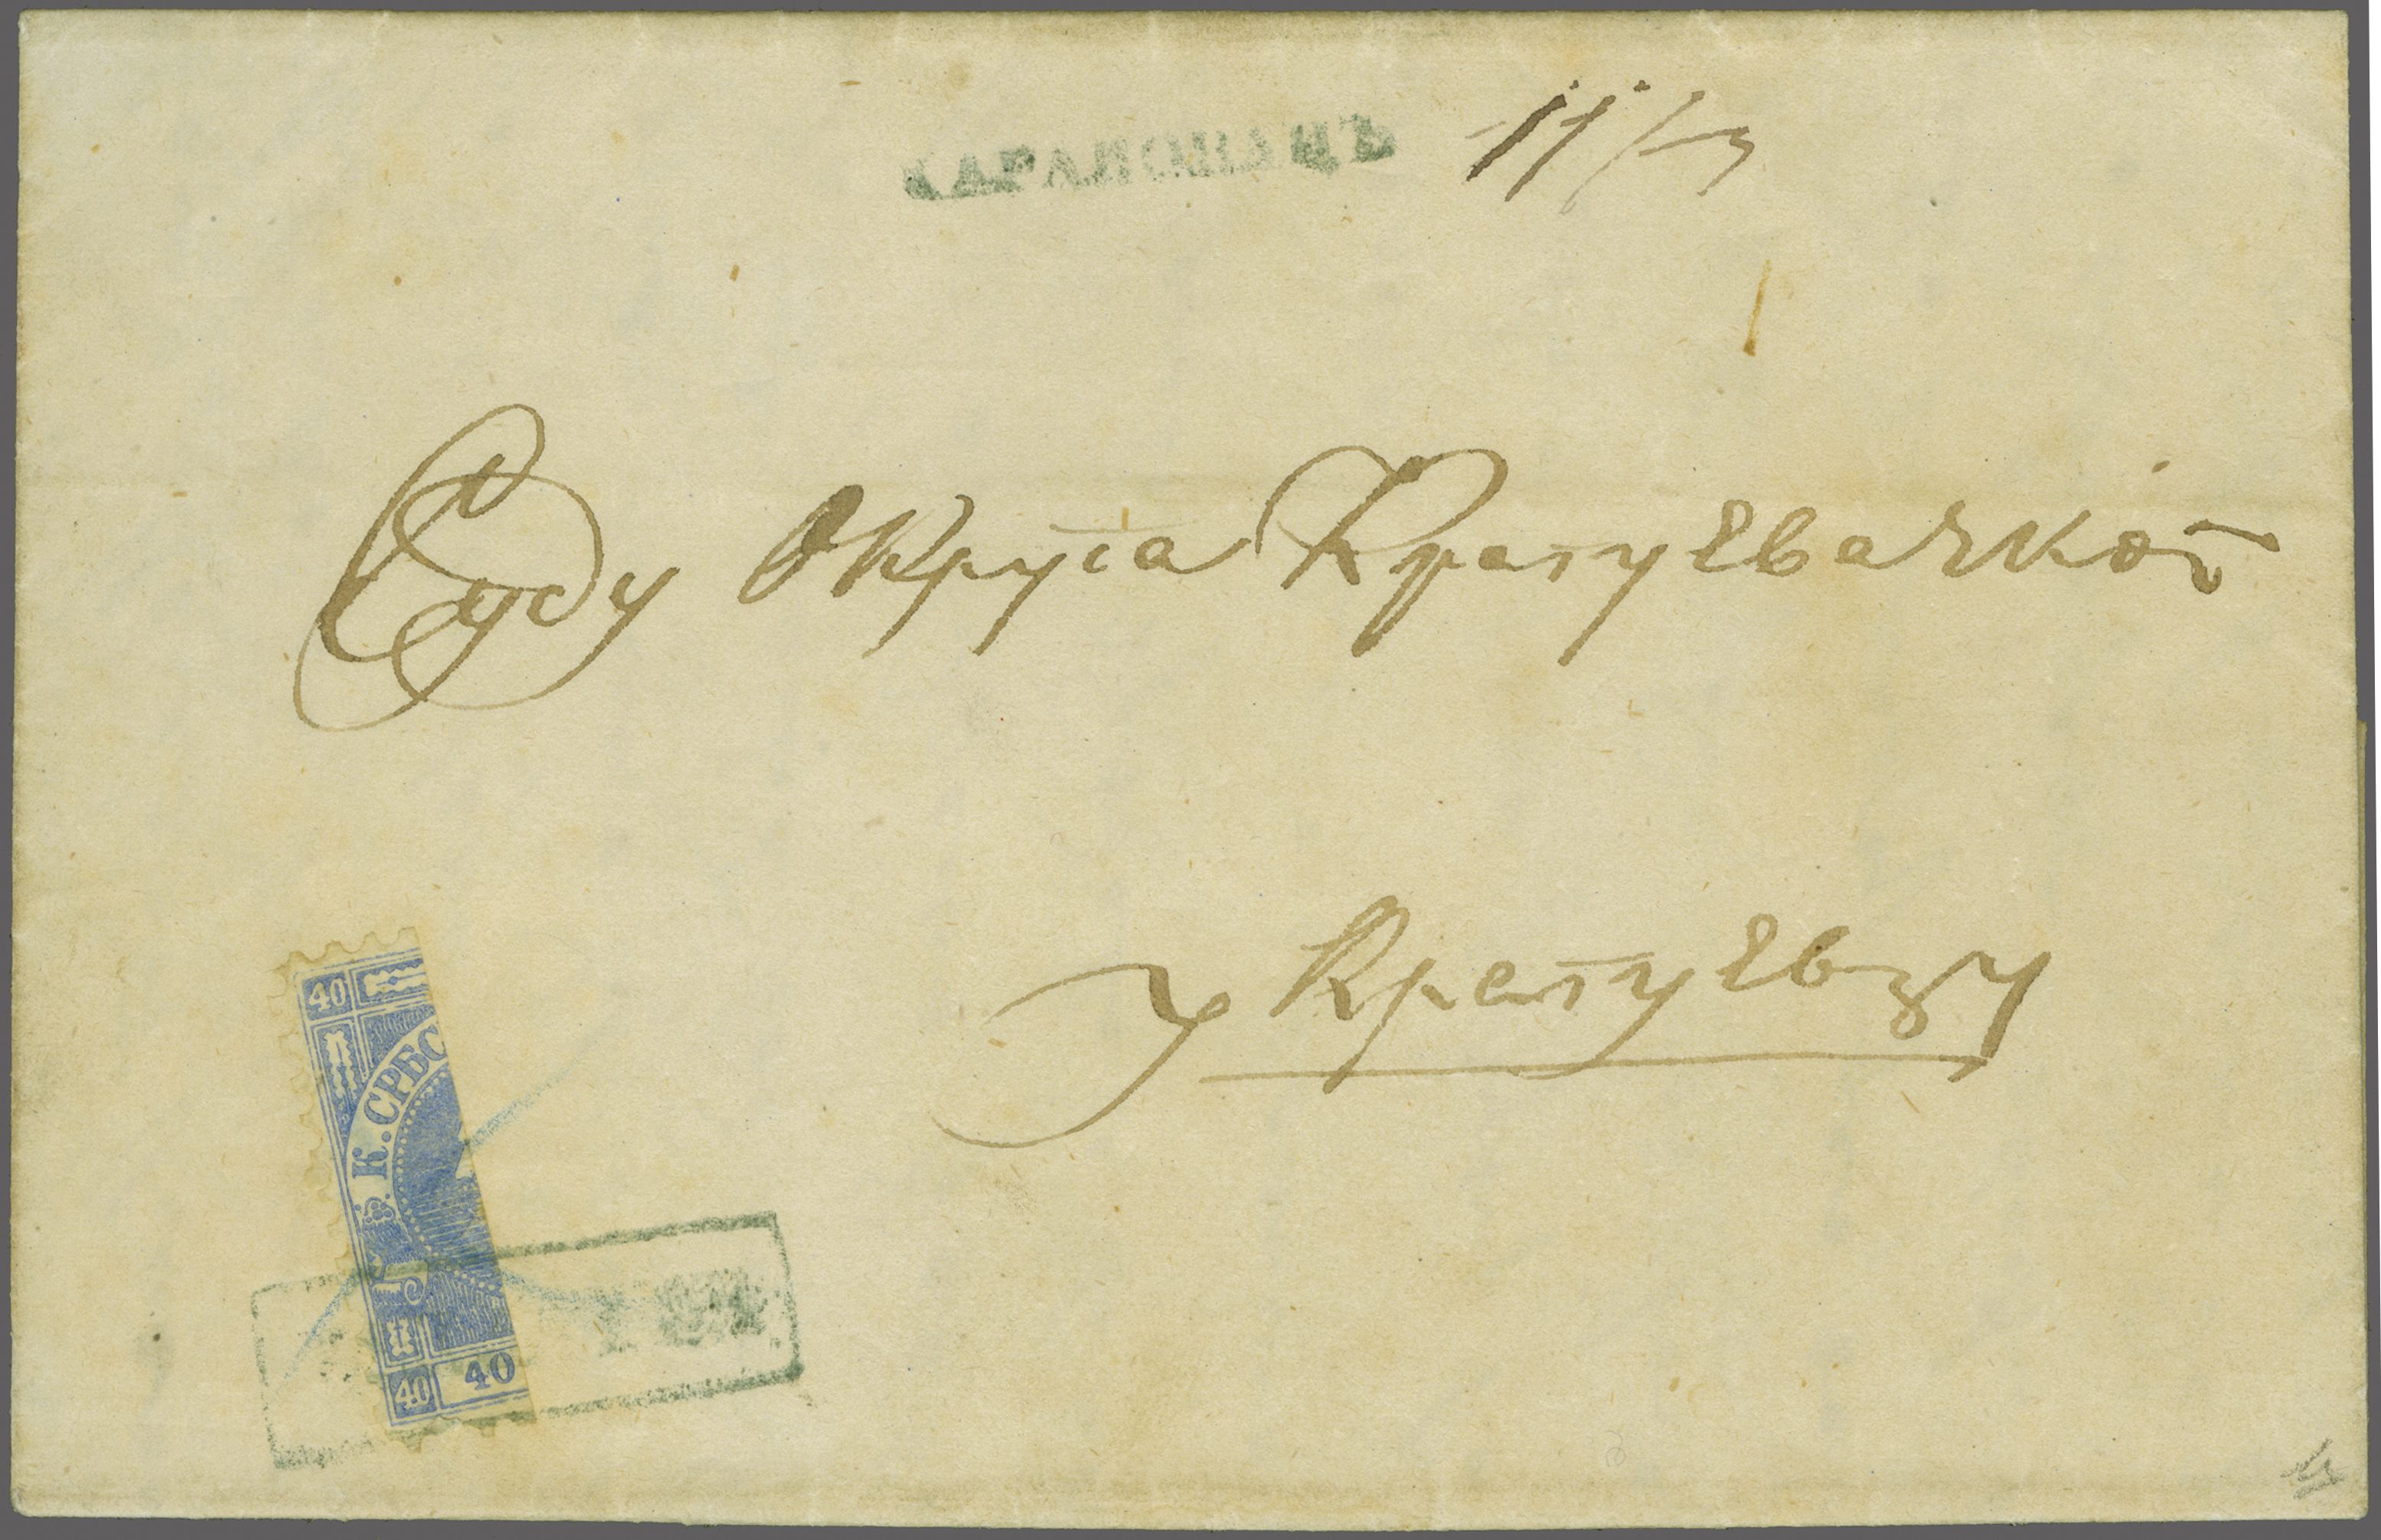 КАРАНОВАЦЪ
Суду Округа Крагуевачког
у Крагуевцу
40
К. СРБС
40 40